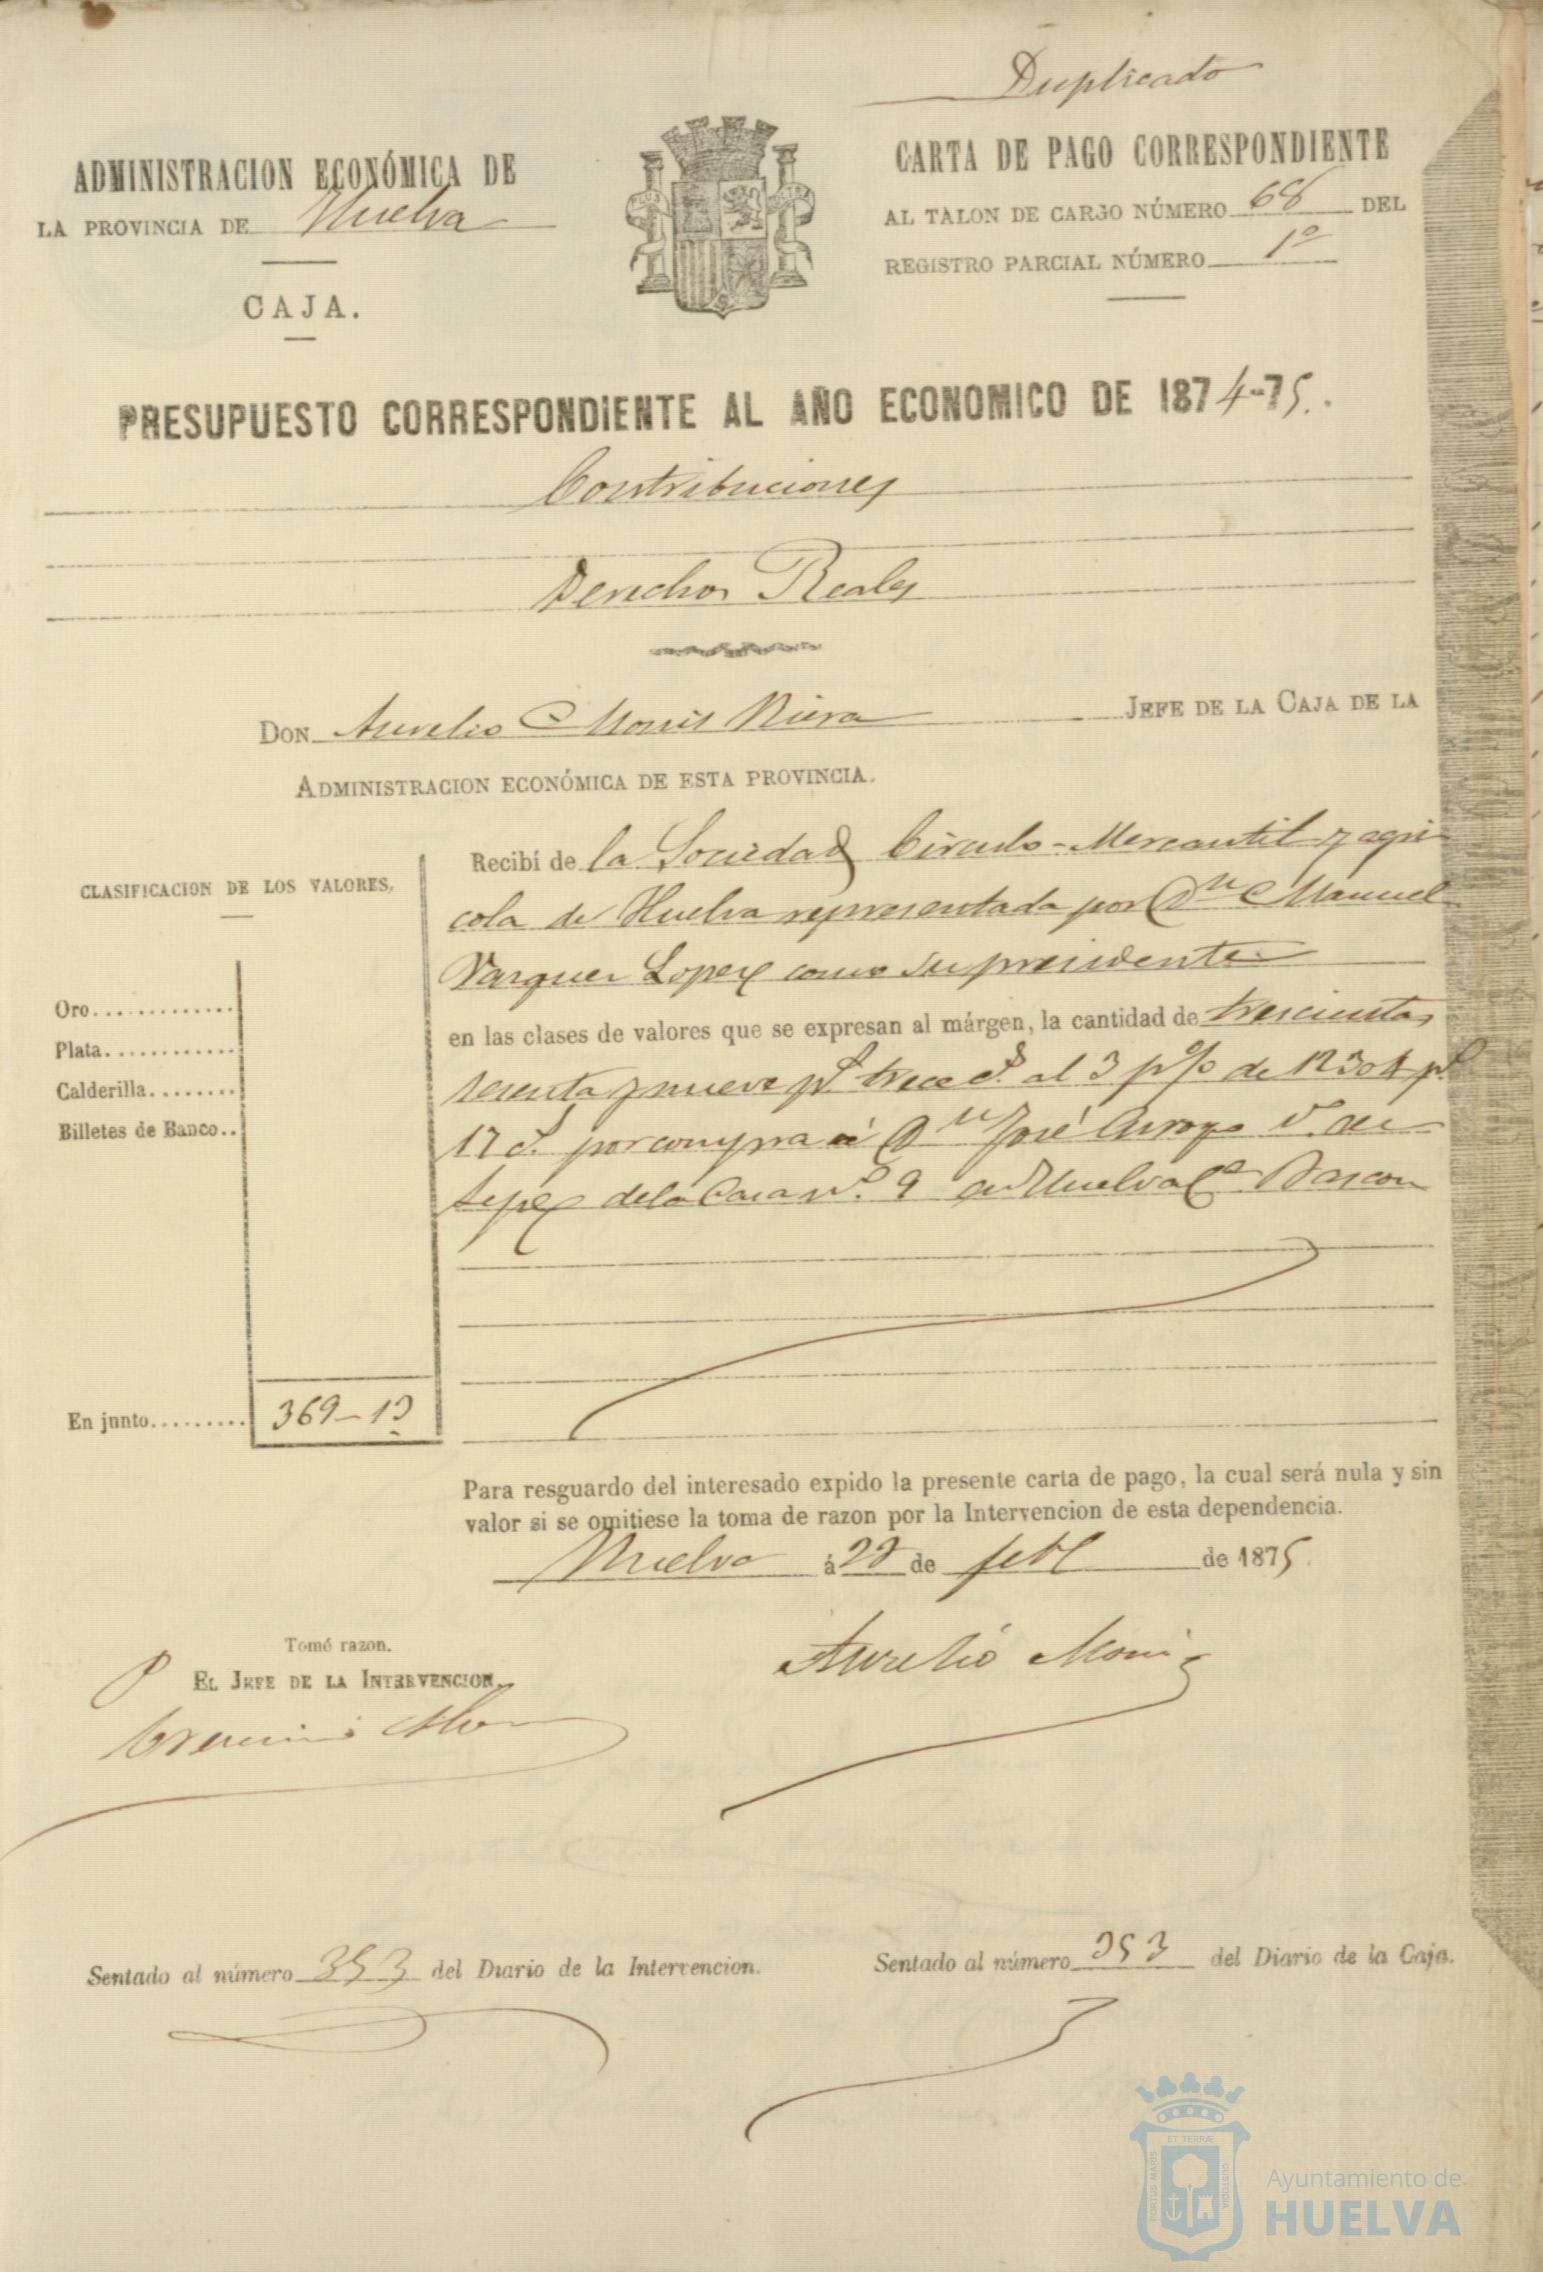 Duplicado
ADMINISTRACION ECONÓMICA DE
LA PROVINCIA DE Huelva
CAJA.
CARTA DE PAGO CORRESPONDIENTE
AL TALON DE CARGO NÚMERO 68 DEL
REGISTRO PARCIAL NÚMERO 1º
PRESUPUESTO CORRESPONDIENTE AL AÑO ECONOMICO DE 1874-75.
Contribuciones
Derechos Reales
DON Aurelio Monis Riera JEFE DE LA CAJA DE LA
ADMINISTRACION ECONÓMICA DE ESTA PROVINCIA.
CLASIFICACION DE LOS VALORES.
Oro
Plata
Calderilla
Billetes de Banco
En junto 369-13
Recibí de la Sociedad Circulo-Mercantil y agri
cola de Huelva representada por Dn Manuel
Vazquez Lopez como su presidente
en las clases de valores que se expresan al márgen, la cantidad de trescientas
sesenta y nueve ps trece cs. al 3 p% de 12304 ps
17 cs. por compra á Dn José Arroyo
de la Casa nº. 9 en Huelva Ce Rascon
Para resguardo del interesado expido la presente carta de pago, la cual será nula y sin
valor si se omitiese la toma de razon por la Intervencion de esta dependencia.
Huelva á de feb de 1875.
Tomé razon.
P
EL JEFE DE LA INTERVENCION.
Aurelió Monis
Sentado al número 353 del Diario de la Intervencion.
Sentado al número 353 del Diario de la Caja.
PORTUS MARIS
ET TERRÆ
CUSTODIA
Ayuntamiento de
HUELVA